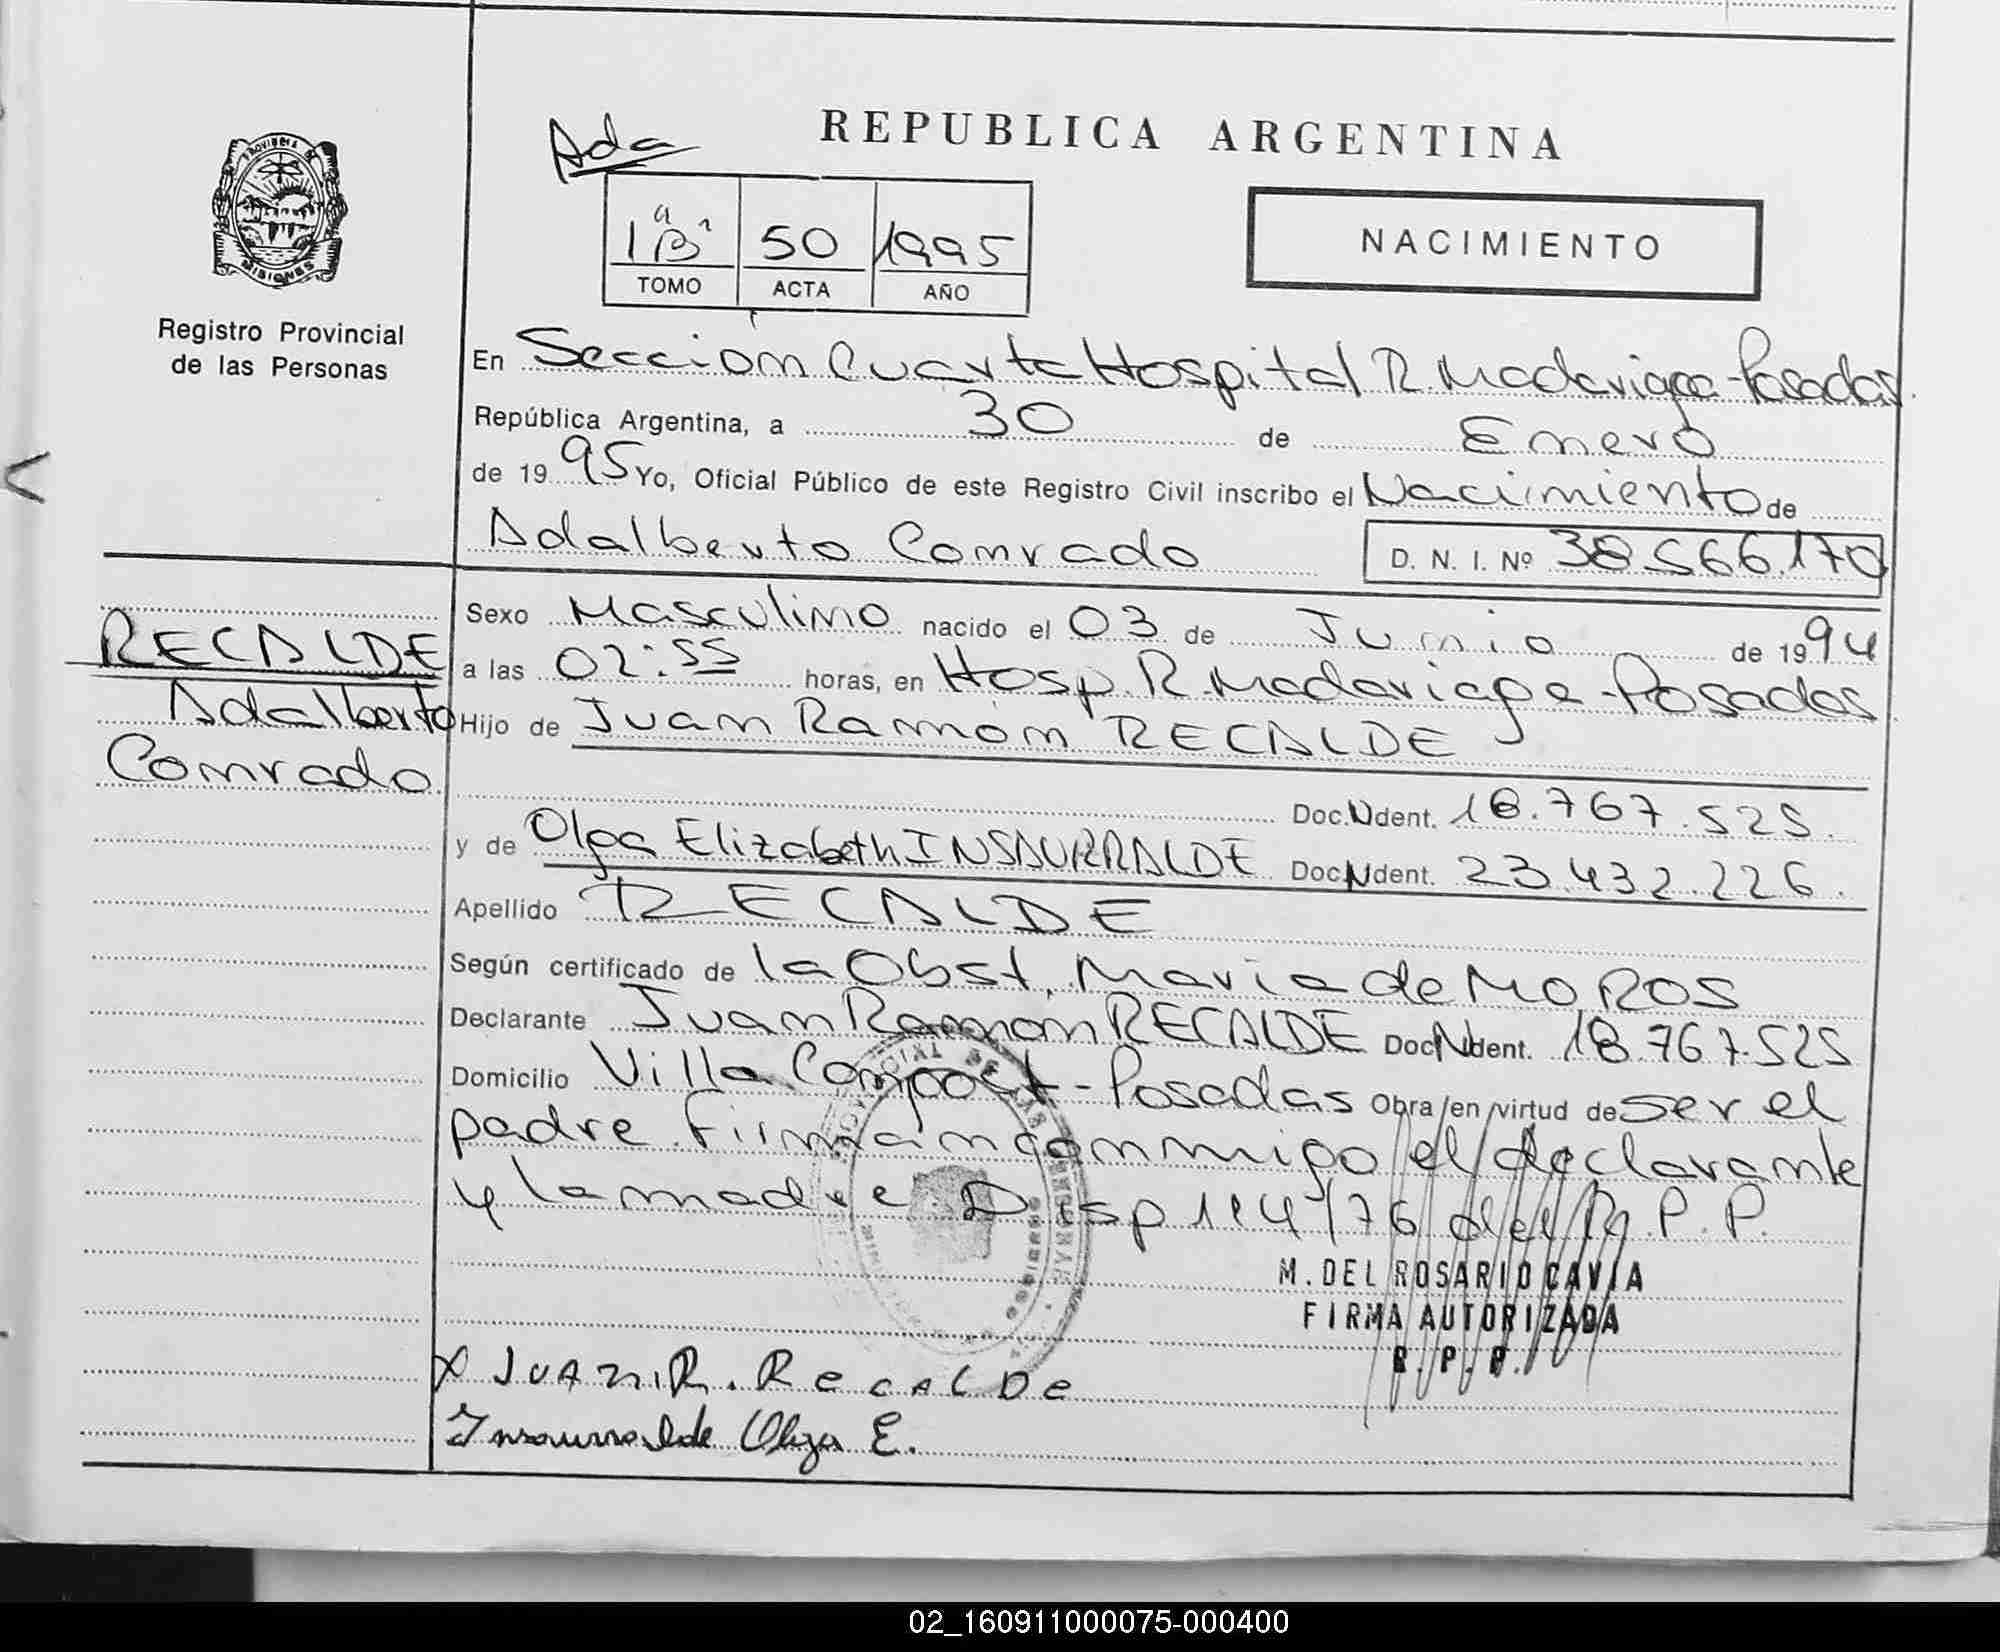 Ada
REPUBLICA ARGENTINA
PROVINCIA DE
MISIONES
Registro Provincial
de las Personas
1ª "B" 50 1995
TOMO ACTA AÑO
NACIMIENTO
En Sección Cuarta Hospital R. Madariaga - Posadas.
República Argentina, a 30 de Enero
de 1995 Yo, Oficial Público de este Registro Civil inscribo el Nacimiento de
Adalberto Conrado D. N. I. Nº 38.566.170
RECALDE
Adalberto
Conrado
Sexo Masculino nacido el 03 de Junio de 1994
a las 02:55 horas, en Hosp. R. Madariaga - Posadas
Hijo de Juan Ramón RECALDE
Doc. Ident. 18.767.525.
y de Olga Elizabeth INSAURRALDE Doc. Ident. 23.432.226.
Apellido RECALDE
Según certificado de la Obst. Maria de MOROS
Declarante Juan Ramon RECALDE Doc Ident. 18.767.525
Domicilio Villa Compost - Posadas Obra en virtud de ser el
padre. Firman conmigo el declarante
y la madre Disp 114/76 del R.P.P.
M. DEL ROSARIO CAVIA
FIRMA AUTORIZADA
R. P. P.
X JUAN.R. RecALDe
Insaurralde Olga E.
02_160911000075-000400